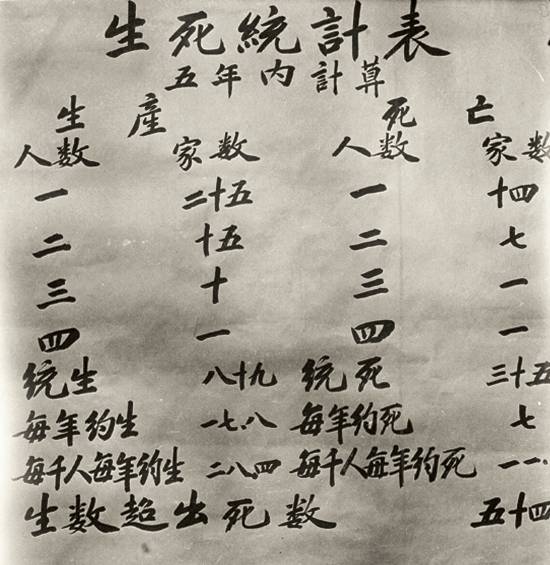 生死統計表
五年內計算
生產 死亡
人數 家數 人數 家數
一 二十五 一 十四
二 十五 二 七
三 十 三 一
四 一 四 一
统生 八十九 统死 三十五
每年约生 一七.八 每年约死 七
每千人每年约生 二八.四 每千人每年约死 一一.
生數超出死數 五十四